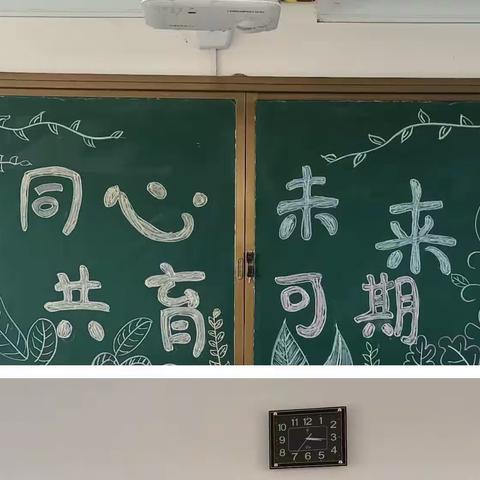 同心
共育
未来
可期
11 12 1
10 2
9 3
8 4
7 6 5